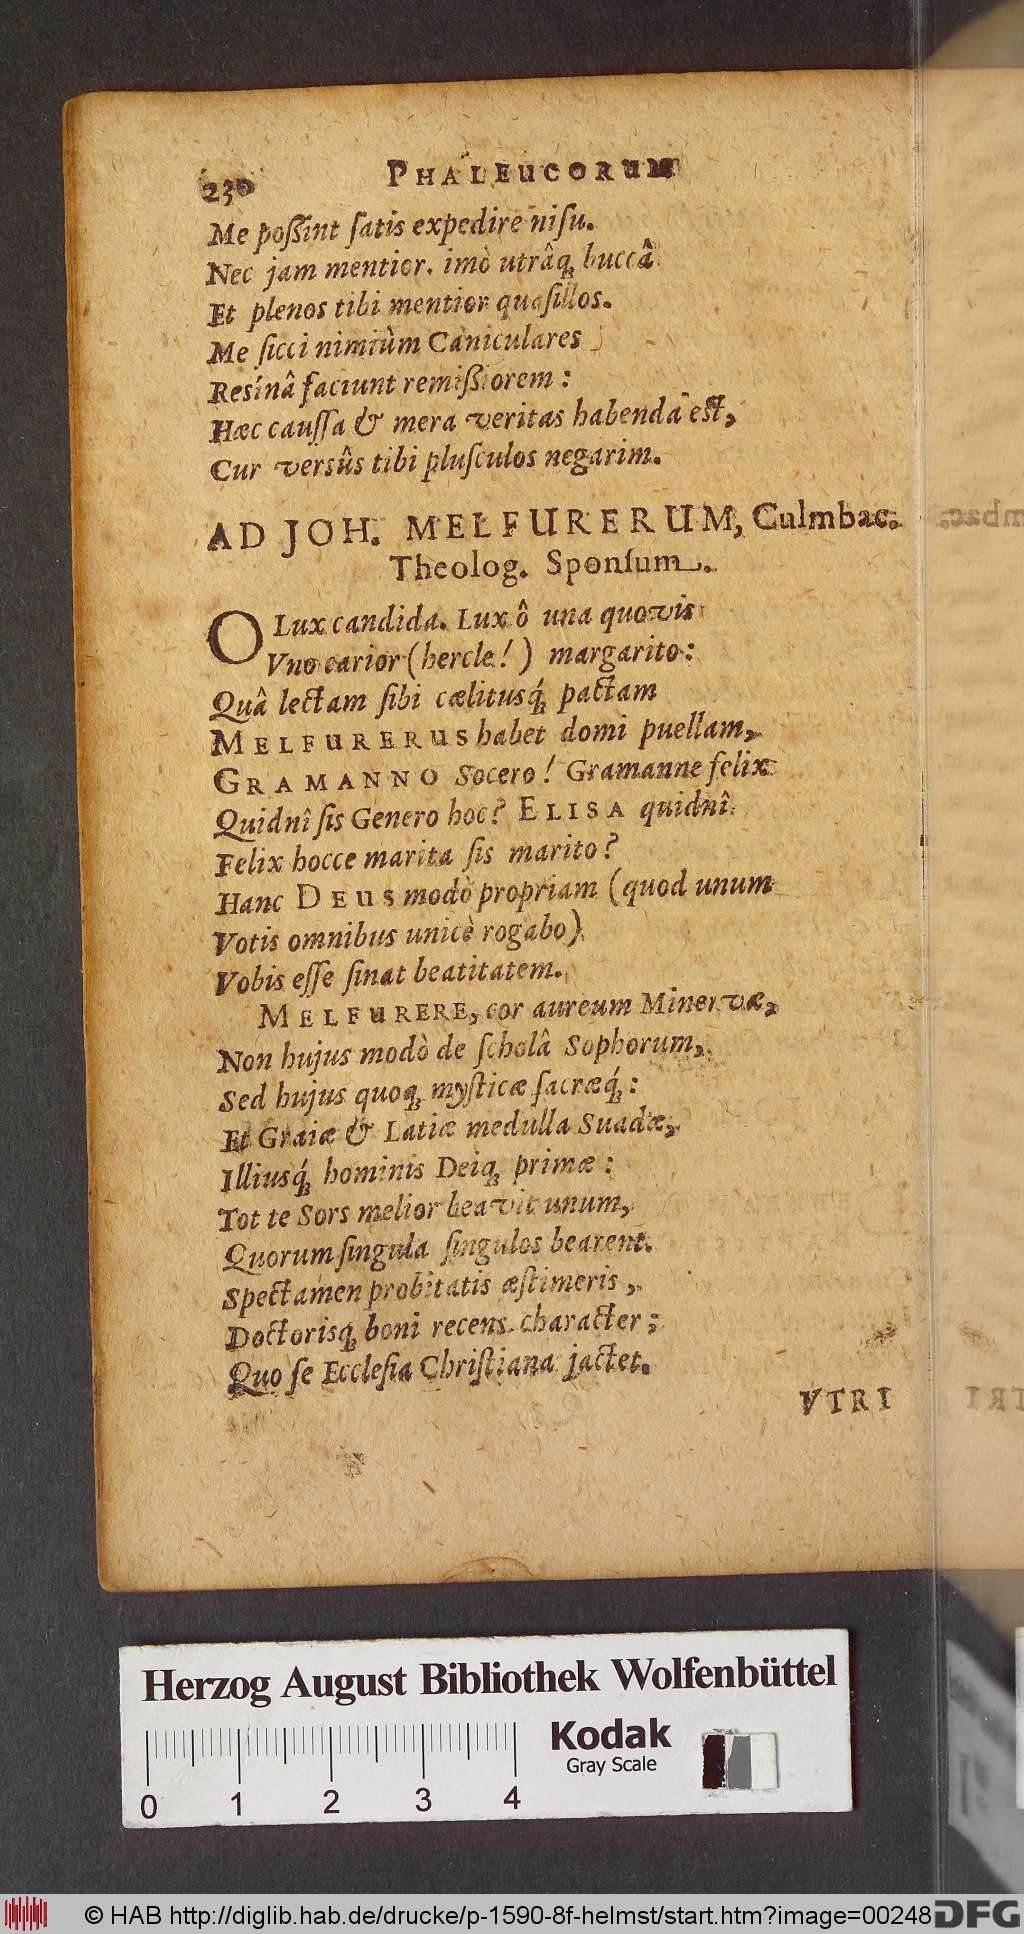 230 PHALEUCORUM
Me poſsint ſatis expedire niſu.
Nec jam mentior. imò utrâq; buccâ
Et plenos tibi mentior quaſillos.
Me ſicci nimiùm Caniculares
Resínâ faciunt remiſsiorem:
Hæc cauſſa & mera veritas habenda est,
Cur versûs tibi pluſculos negarim.
AD JOH. MELFURERUM, Culmbac.
Theolog. Sponſum.
O Lux candida. Lux ô una quovis
Vno carior (hercle!) margarito:
Quâ lectam ſibi cælitusq́; pactam
MELFURERUS habet domi puellam,
GRAMANNO Socero! Gramanne felix
Quidnî ſis Genero hoc? ELISA quidnî
Felix hocce marita ſis marito?
Hanc DEUS modò propriam (quod unum
Votis omnibus unicè rogabo)
Vobis eſſe ſinat beatitatem.
MELFURERE, cor aureum Minervæ,
Non hujus modò de ſcholâ Sophorum,
Sed hujus quoq; myſticæ ſacræq́;:
Et Graiæ & Latiæ medulla Suadæ,
Illiusq́; hominis Deiq; primæ:
Tot te Sors melior beavit unum,
Quorum ſingula ſingulos bearent.
Spectamen probitatis æſtimeris,
Doctorisq; boni recens character;
Quo ſe Eccleſia Chriſtiana jactet.
VTRI
Herzog August Bibliothek Wolfenbüttel
Kodak
Gray Scale
0 1 2 3 4
© HAB http://diglib.hab.de/drucke/p-1590-8f-helmst/start.htm?image=00248
DFG